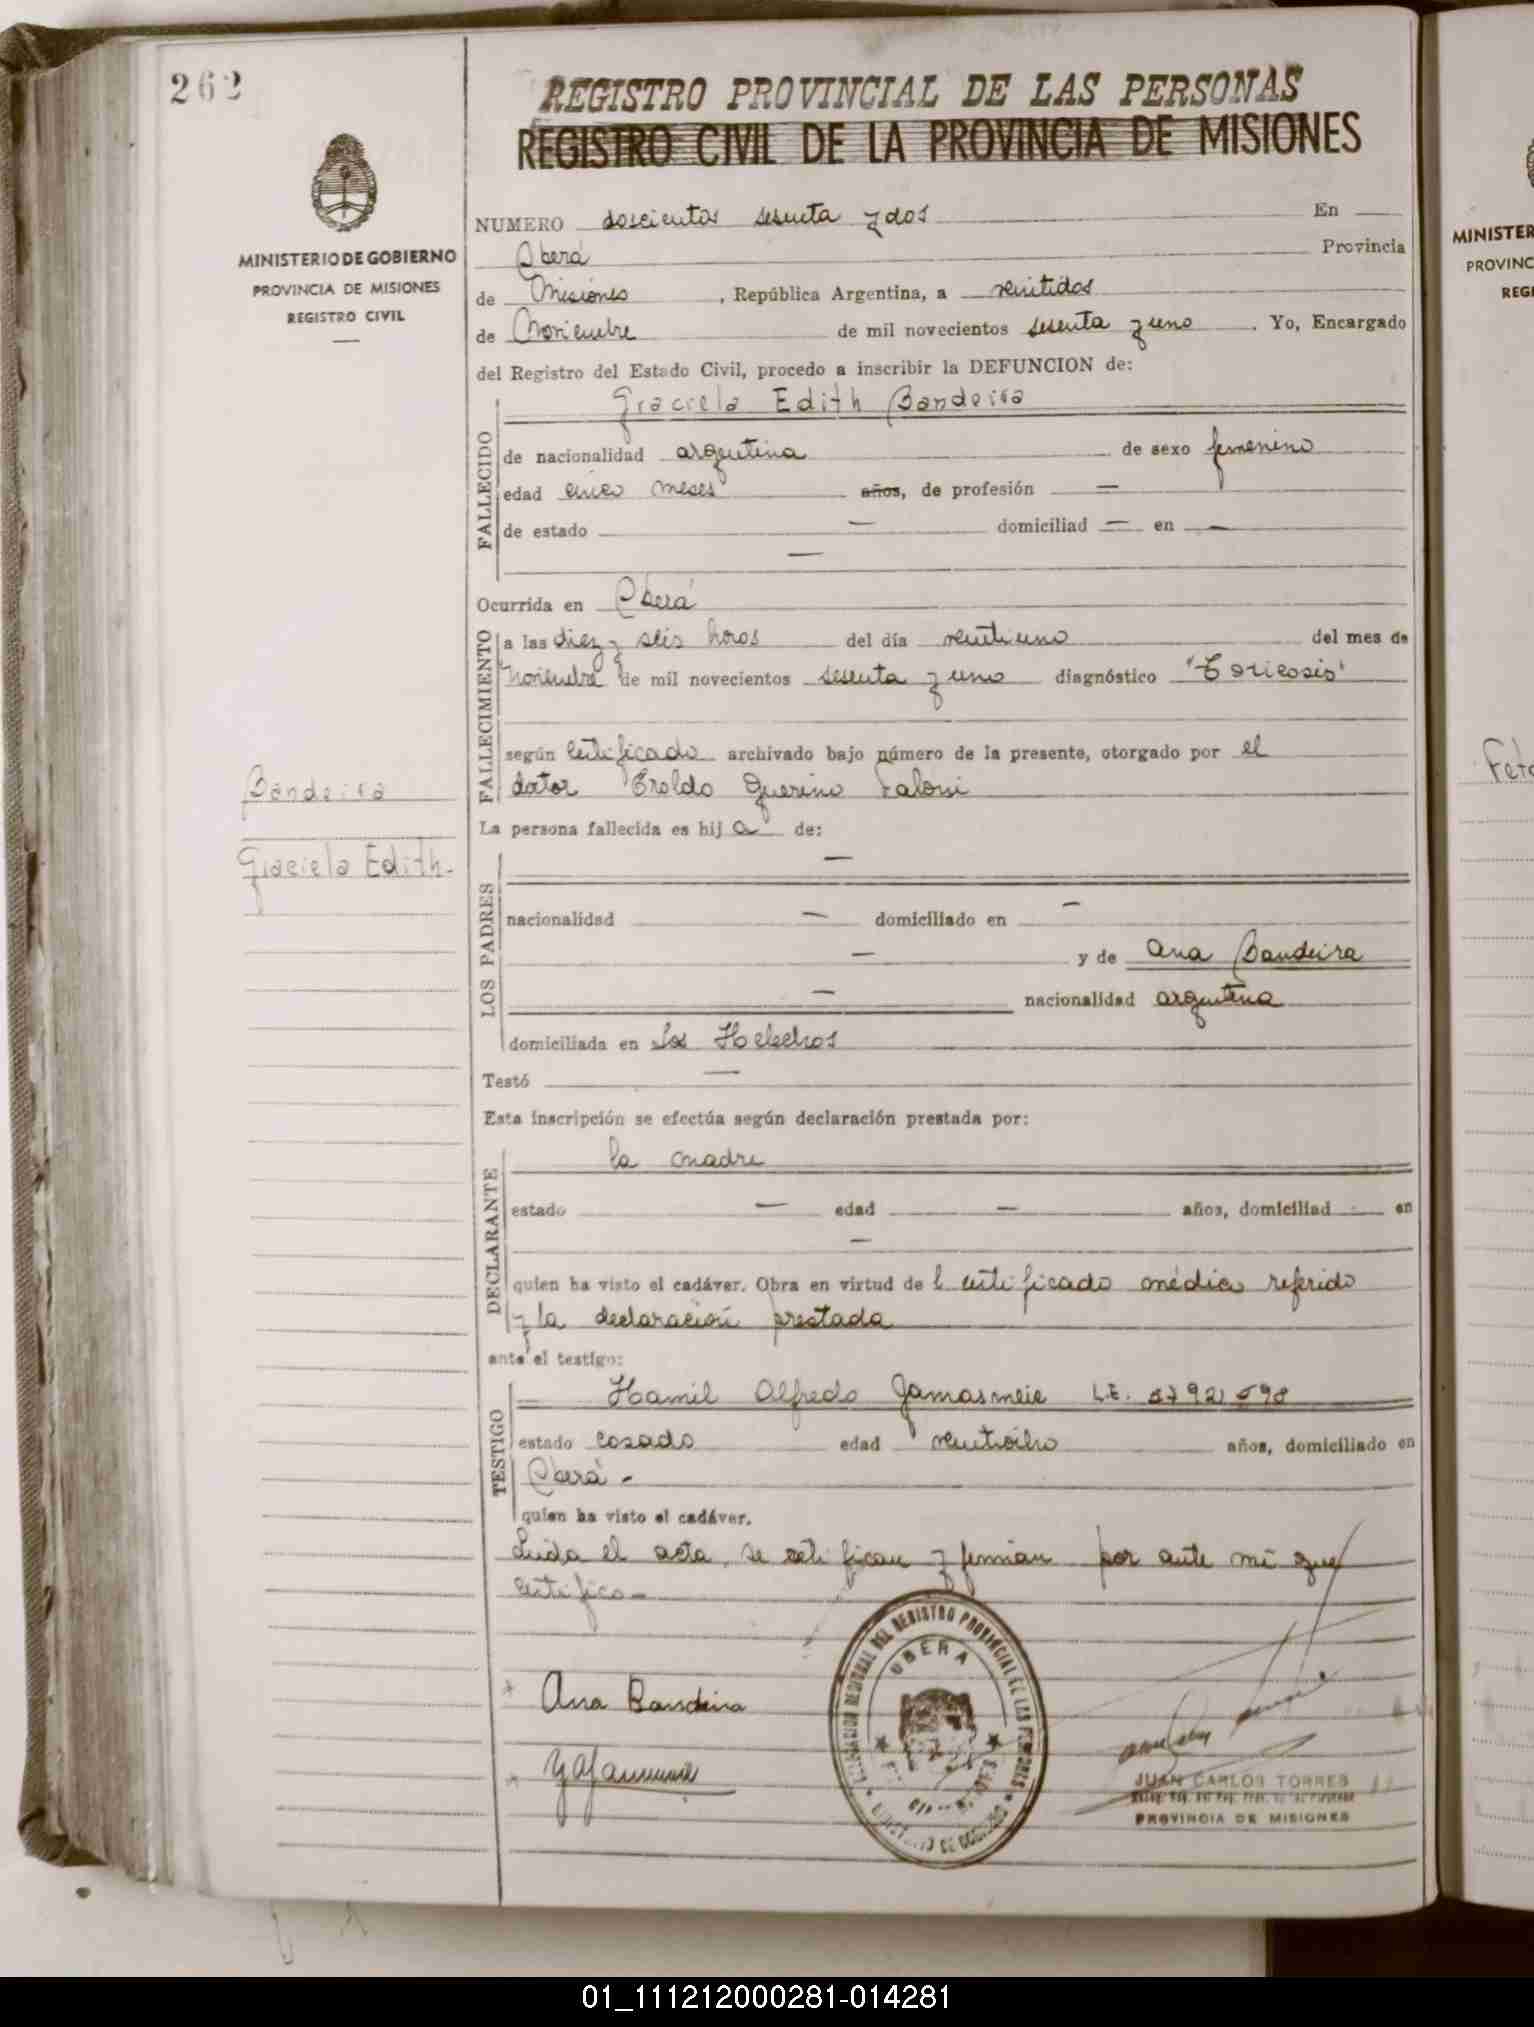 262
REGISTRO PROVINCIAL DE LAS PERSONAS
REGISTRO CIVIL DE LA PROVINCIA DE MISIONES
MINISTERIO DE GOBIERNO
PROVINCIA DE MISIONES
REGISTRO CIVIL
NUMERO doscientos sesenta y dos En
Oberá Provincia
de Misiones, República Argentina, a veintidos
de Noviembre de mil novecientos sesenta y uno. Yo, Encargado
del Registro del Estado Civil, procedo a inscribir la DEFUNCION de:
Graciela Edith Bandeira
FALLECIDO
de nacionalidad argentina de sexo femenino
edad cinco meses años, de profesión —
de estado — domiciliad — en —
—
Ocurrida en Oberá
FALLECIMIENTO
a las diez y seis horas del día veintiuno del mes de
Noviembre de mil novecientos sesenta y uno diagnóstico "Toxicosis"
según certificado archivado bajo número de la presente, otorgado por el
doctor Eroldo Guerino Faloni
Bandeira
Graciela Edith-
La persona fallecida es hija de:
LOS PADRES
—
nacionalidad — domiciliado en —
— y de Ana Bandeira
— nacionalidad argentina
domiciliada en Los Helechos
Testó —
Esta inscripción se efectúa según declaración prestada por:
DECLARANTE
la madre
estado — edad — años, domiciliad en
—
quien ha visto el cadáver. Obra en virtud del certificado médico referido
y la declaración prestada
ante el testigo:
TESTIGO
Hamil Alfredo Yamasmeie L.E.
estado casado edad veintiocho años, domiciliado en
Oberá -
quien ha visto el cadáver.
Leida el acta, se ratifican y firman por ante mi que
certifico-
Ana Bandeira
DELEGACION REGIONAL DEL REGISTRO PROVINCIAL DE LAS PERSONAS
OBERA
MINISTERIO DE GOBIERNO
JUAN CARLOS TORRES
PROVINCIA DE MISIONES
MINISTER
PROVINC
REGI
01_111212000281-014281